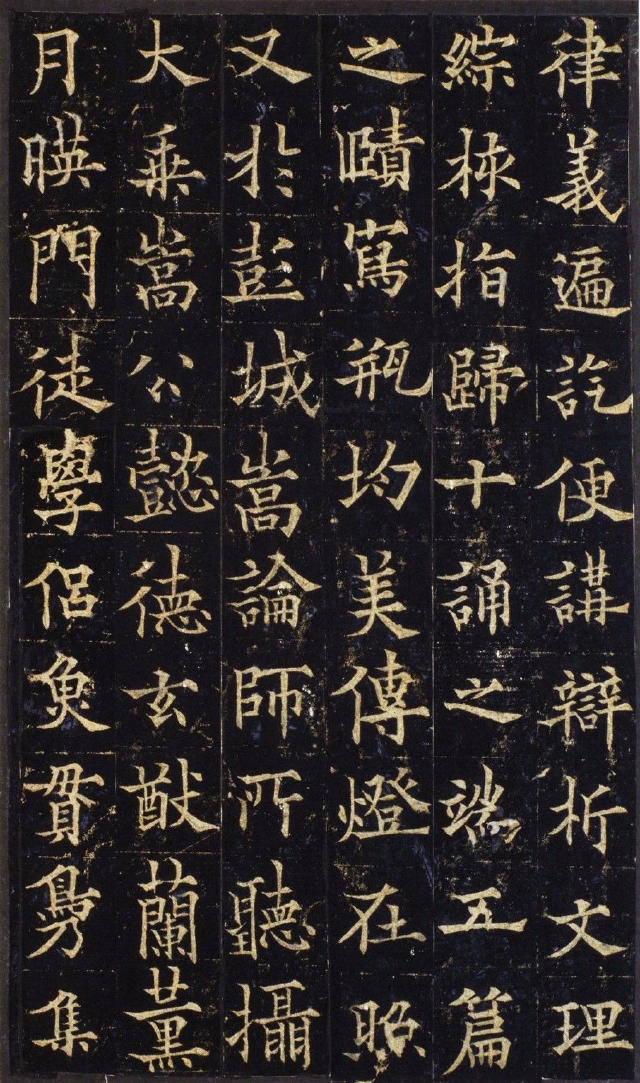 律義遍訖便講辯析文理
綜棶指歸十誦之端五篇
之賾寫瓶均美傳燈在照
又於彭城嵩論師所聽攝
大乗嵩公懿德玄猷蘭薰
月暎門徒學侣魚貫鳧集